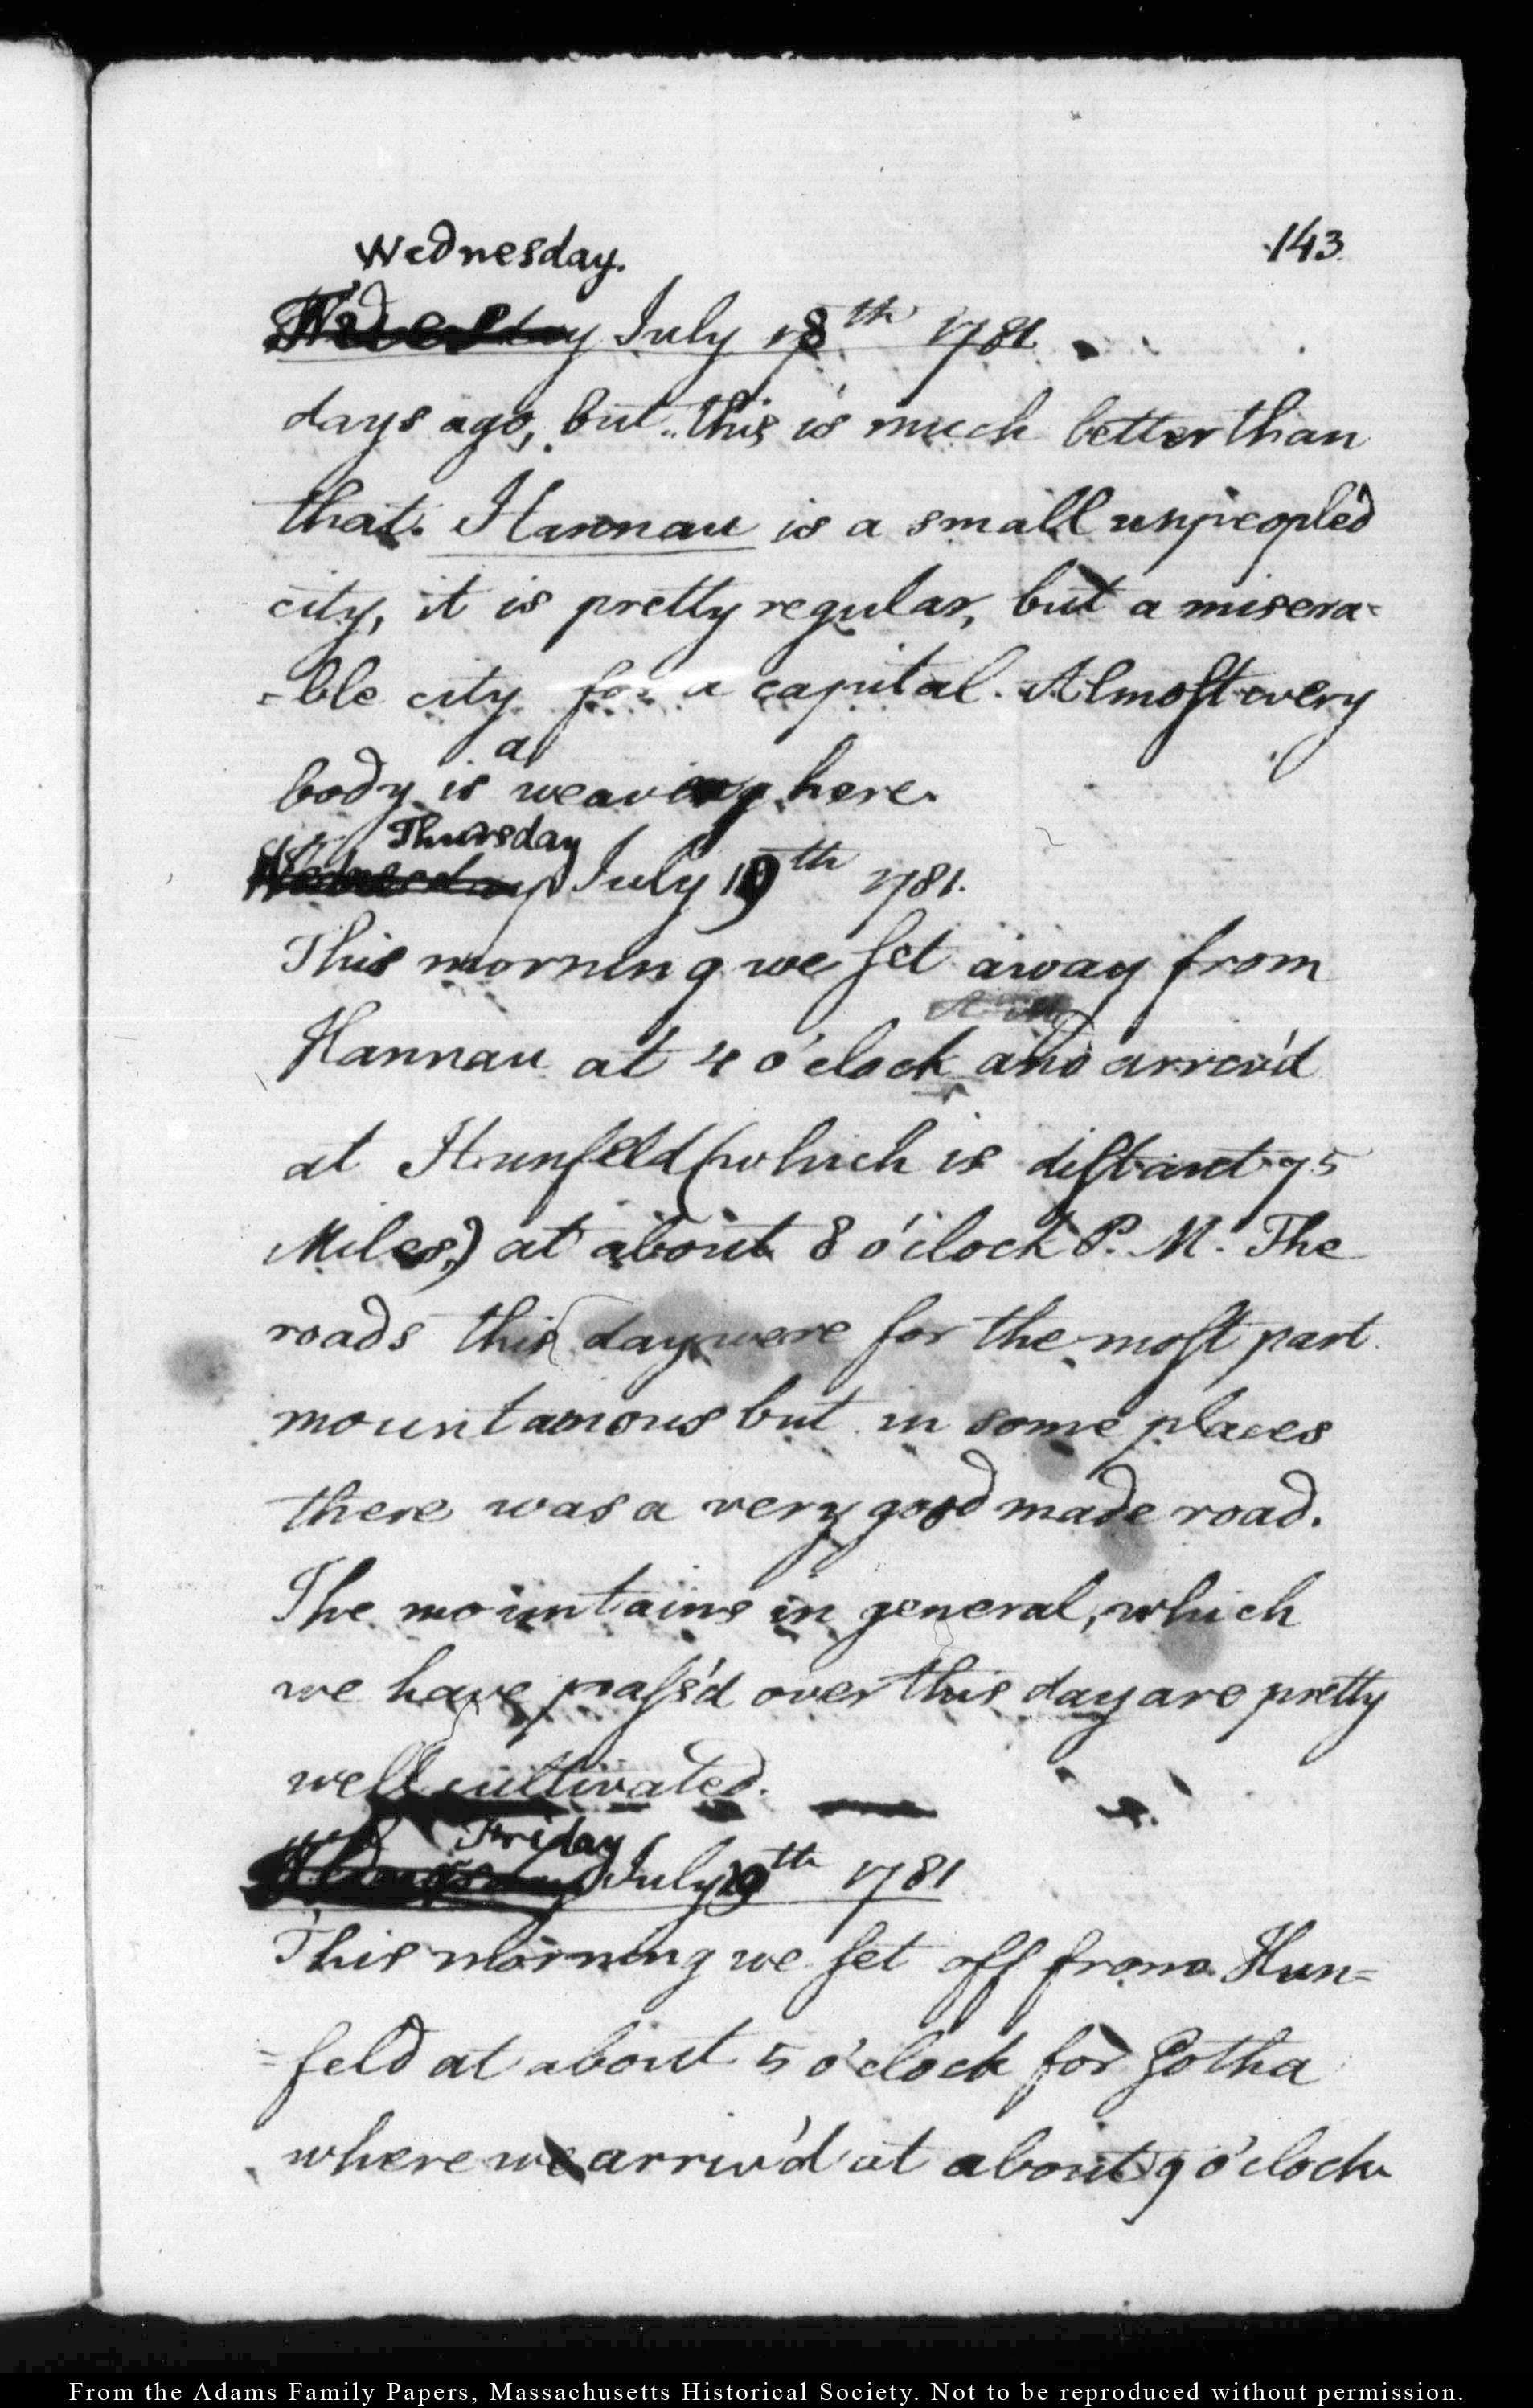 143
Wednesday.
July 18th 1781
days ago, but this is much better than
that. Hannau is a small unpeopled
city, it is pretty regular, but a misera=
=ble city for a capital. Almost every
a
body is weaving here.
Thursday
July 19th 1781.
This morning we set away from
Hannau at 4 o'clock and arriv'd
at Hunfeld (which is distant 75
Miles,) at about 8 o'clock P. M. The
roads this day were for the most part
mountainous but in some places
there was a very good made road.
The mountains in general, which
we have pass'd over this day are pretty
well cultivated.
Friday
July th 1781
This morning we set off from Hun=
=feld at about 5 o'clock for Gotha
where we arriv'd at about 9 o'clock
From the Adams Family Papers, Massachusetts Historical Society. Not to be reproduced without permission.